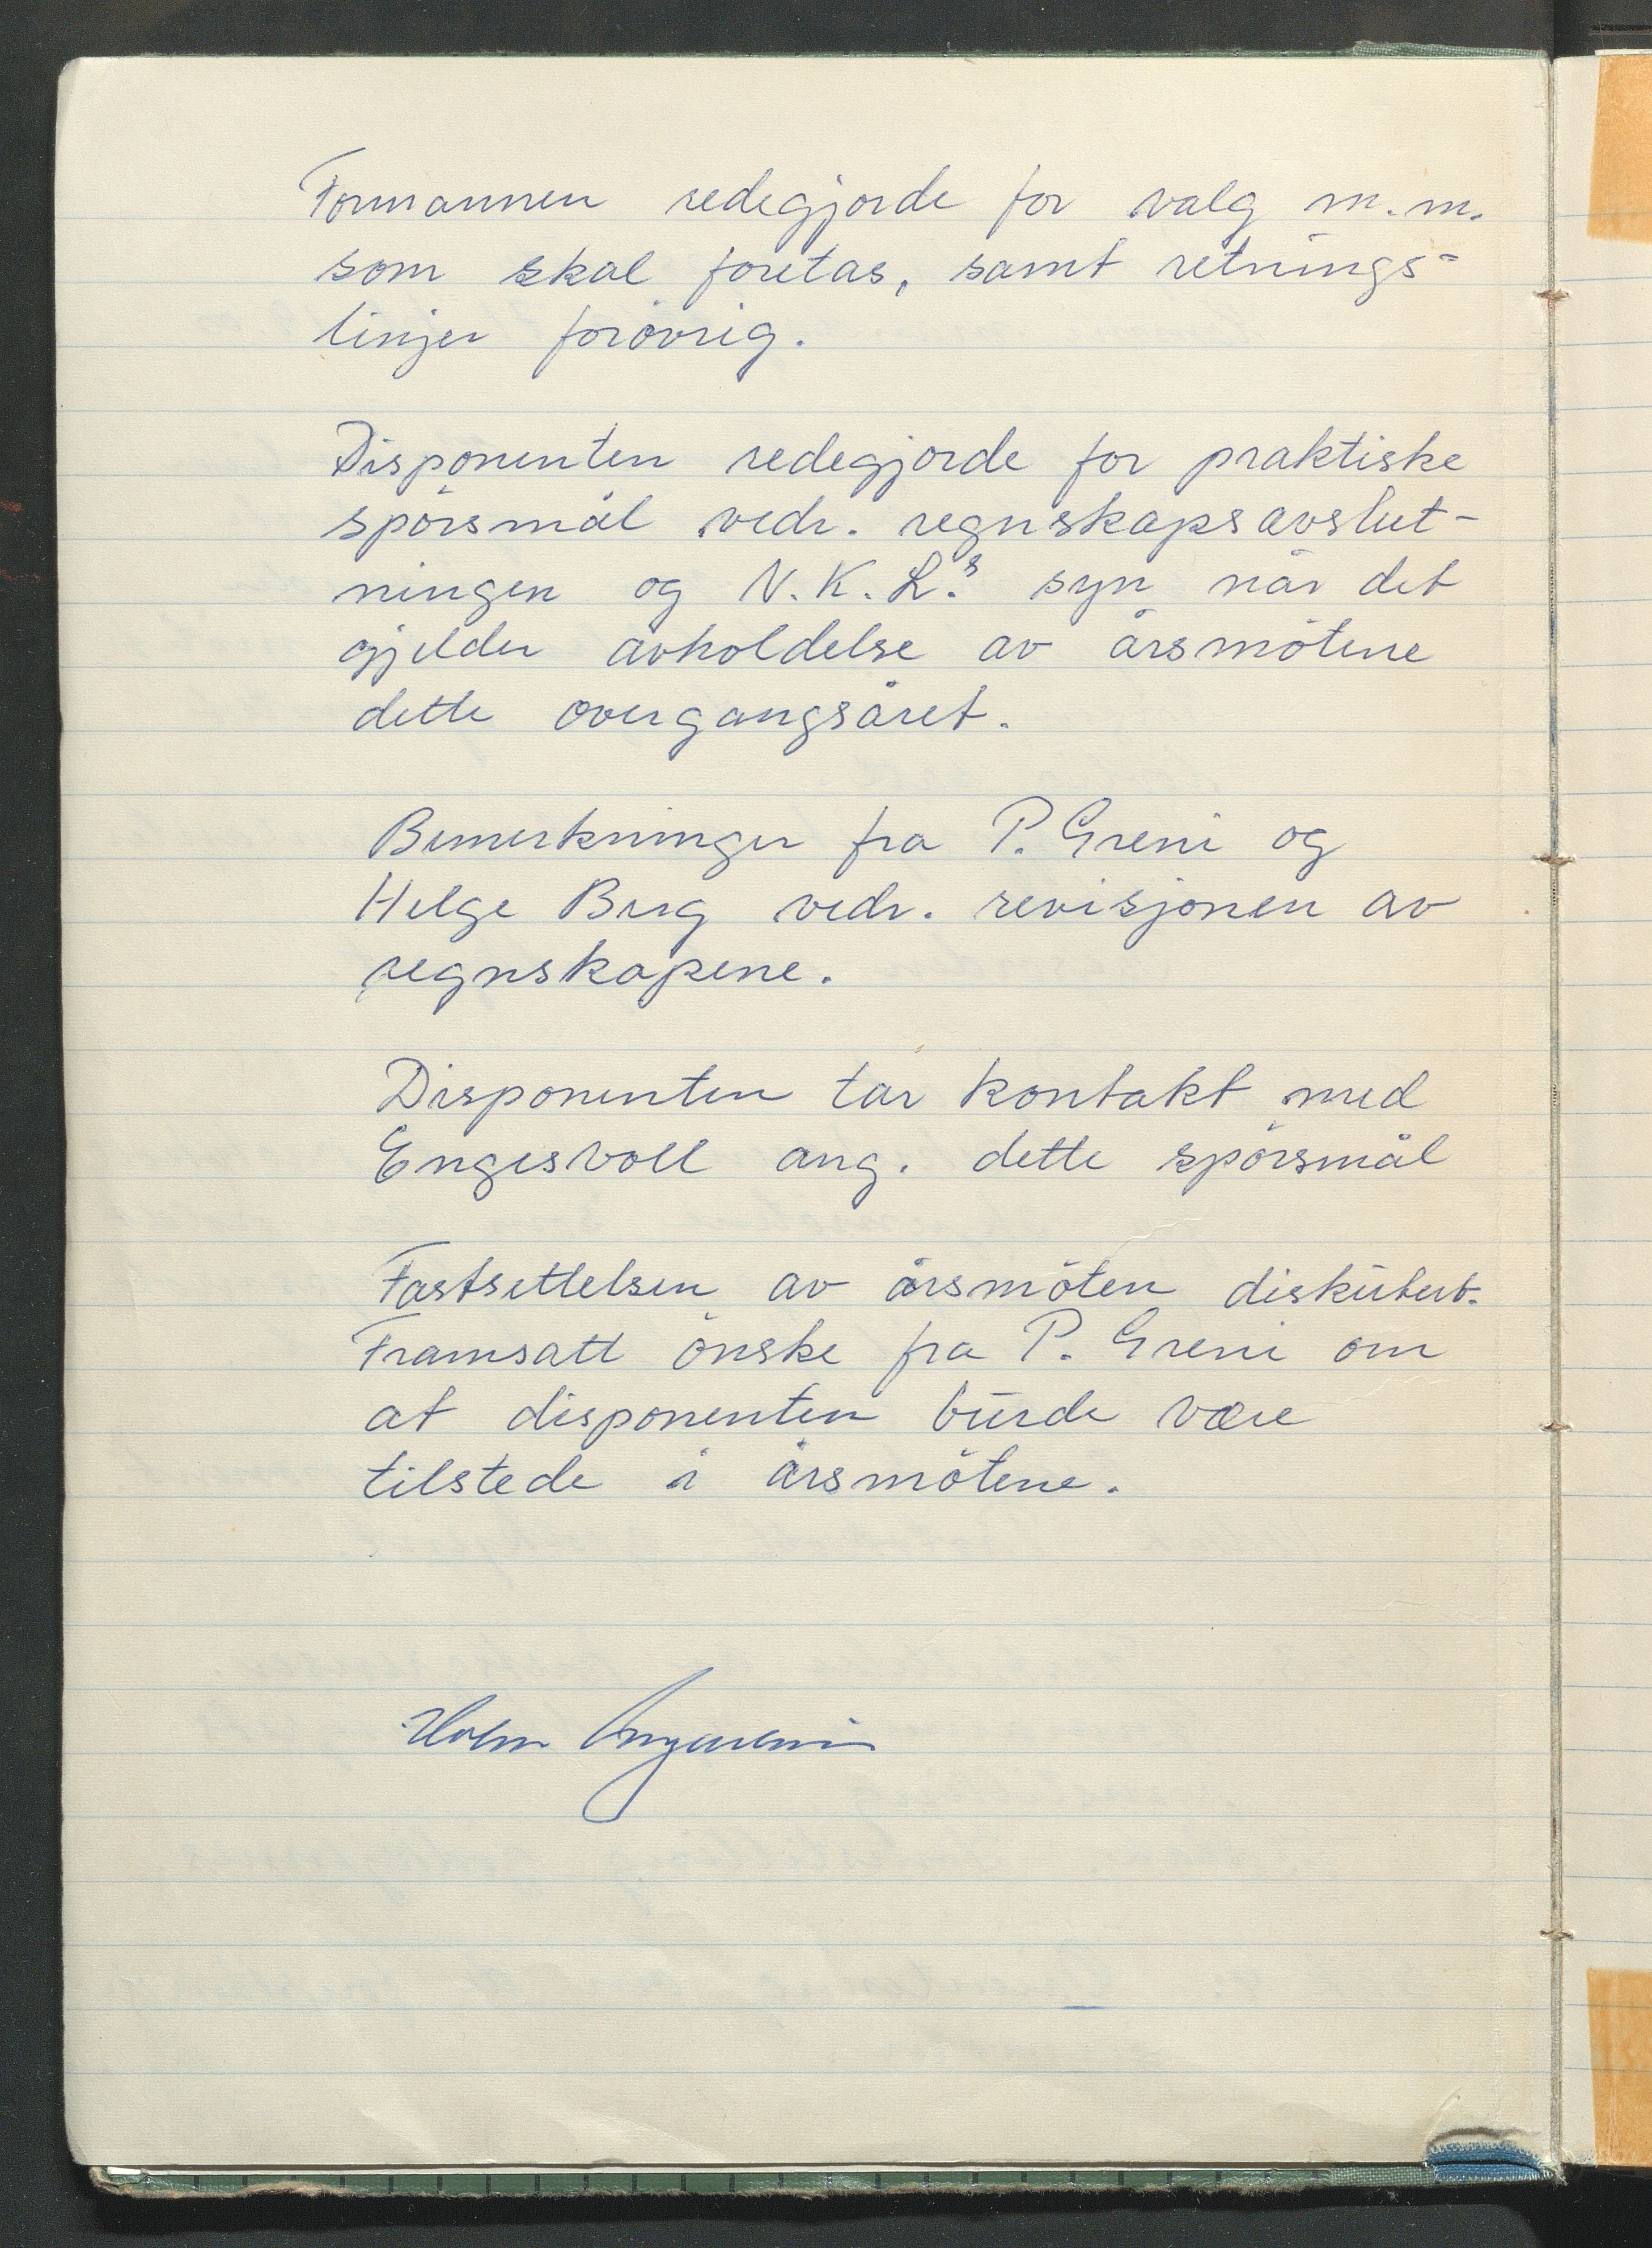 Formannen redegjorde for valg m.m.
som skal foretas, samt retnings-
linjer forövrig.
Disponenten redegjorde for praktiske
spörsmål vedr. regnskapsavslut-
ningen og N.K.L.s syn når det
gjelder avholdelse av årsmötene
dette overgangsåret.
Bemerkninger fra P. Greni og
Helge Berg vedr. revisjonen av
regnskapene.
Disponenten tar kontakt med
Engesvoll ang. dette spörsmål
Fastsettelsen av årsmöten diskutert.
Framsatt önske fra P. Greni om
at disponenten burde være
tilstede i årsmötene.
Holm